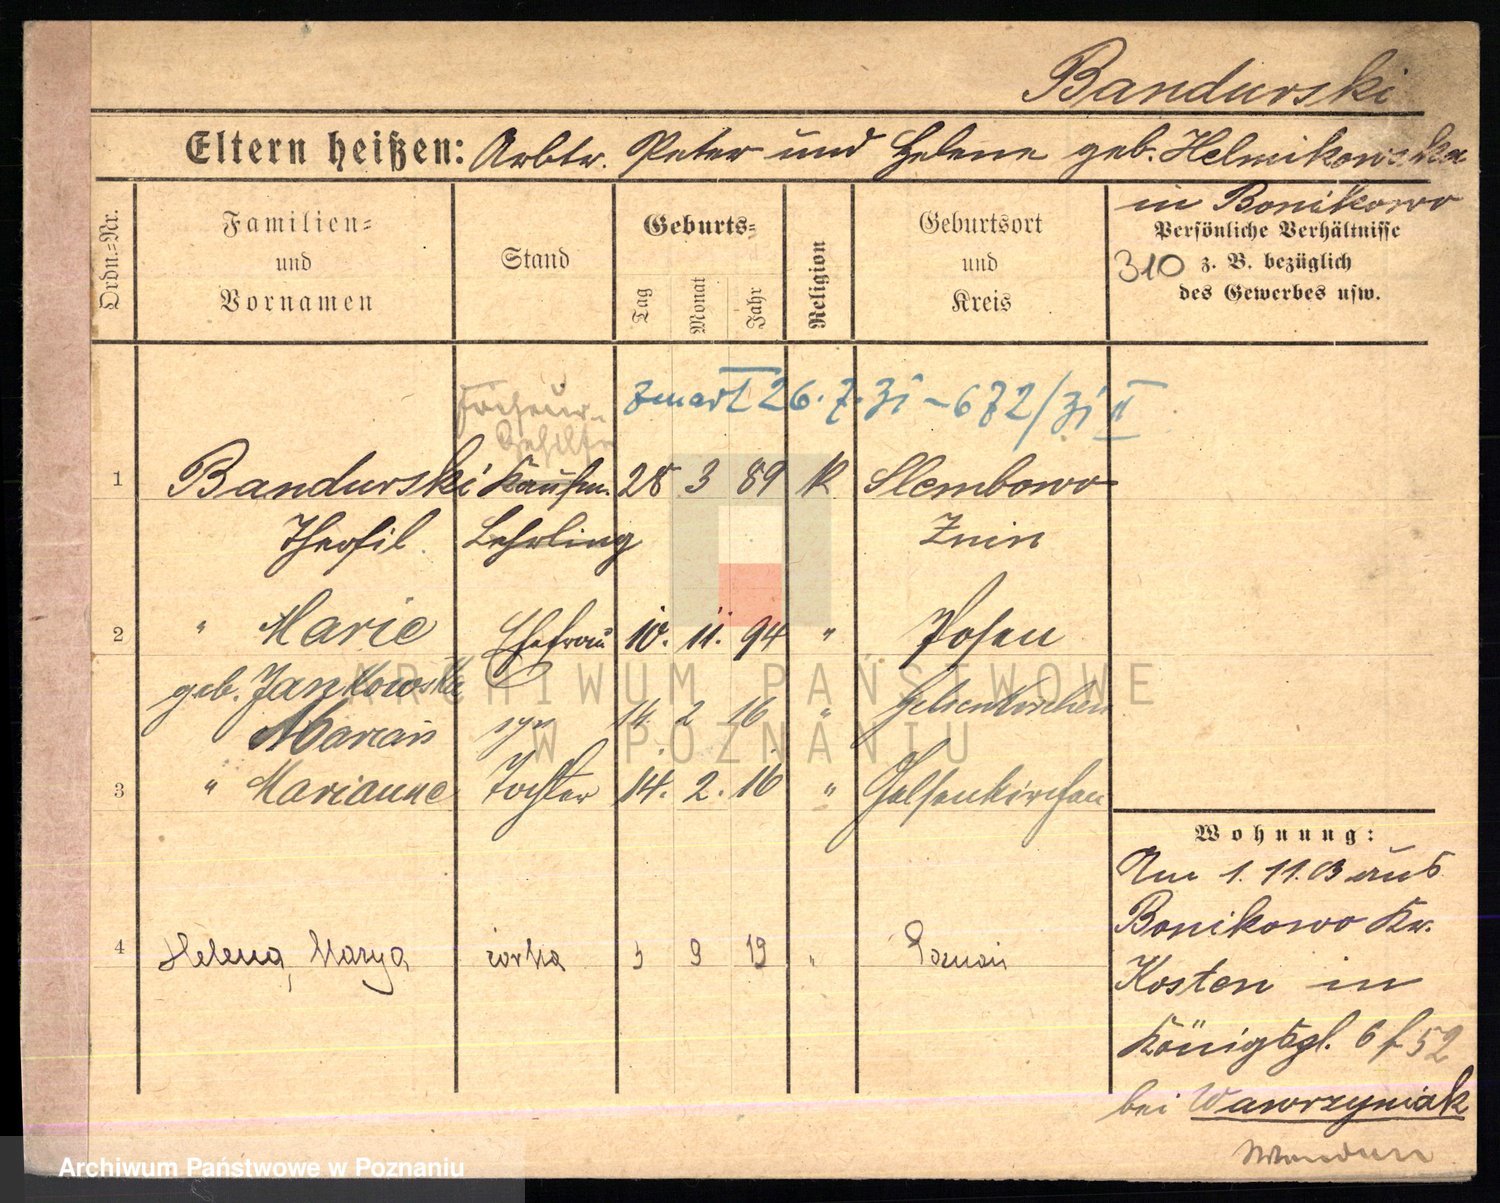 Bandurski
Eltern heißen: Arbtr. Peter und Helene geb. Helmikowska
in Bonikowo
Ordn.=Nr.
Familien=
und
Vornamen
Stand
Geburts=
Tag
Monat
Jahr
Religion
Geburtsort
und
Kreis
Persönliche Verhältnisse
310 z. B. bezüglich
des Gewerbes usw.
zmarł 26.7.31 – 672/31 II
Gehilfe
1 Bandurski Kaufm. 28 3 89 K Slembowo
Theofil Lehrling Znin
2 " Marie Ehefrau 10. 11. 94 " Posen
geb. Jankowska
Marian syn 14. 2 16 " Gelsenkirchen
3 " Marianne Tochter 14. 2. 16 " Gelsenkirchen
4 Helena, Marya córka 3 9 19 " Poznań
Wohnung:
Am 1.11.03 aus
Bonikowo Kr.
Kosten in
Königspl. 6 f 52
bei Wawrzyniak
ARCHIWUM PAŃSTWOWE
W POZNANIU
Archiwum Państwowe w Poznaniu